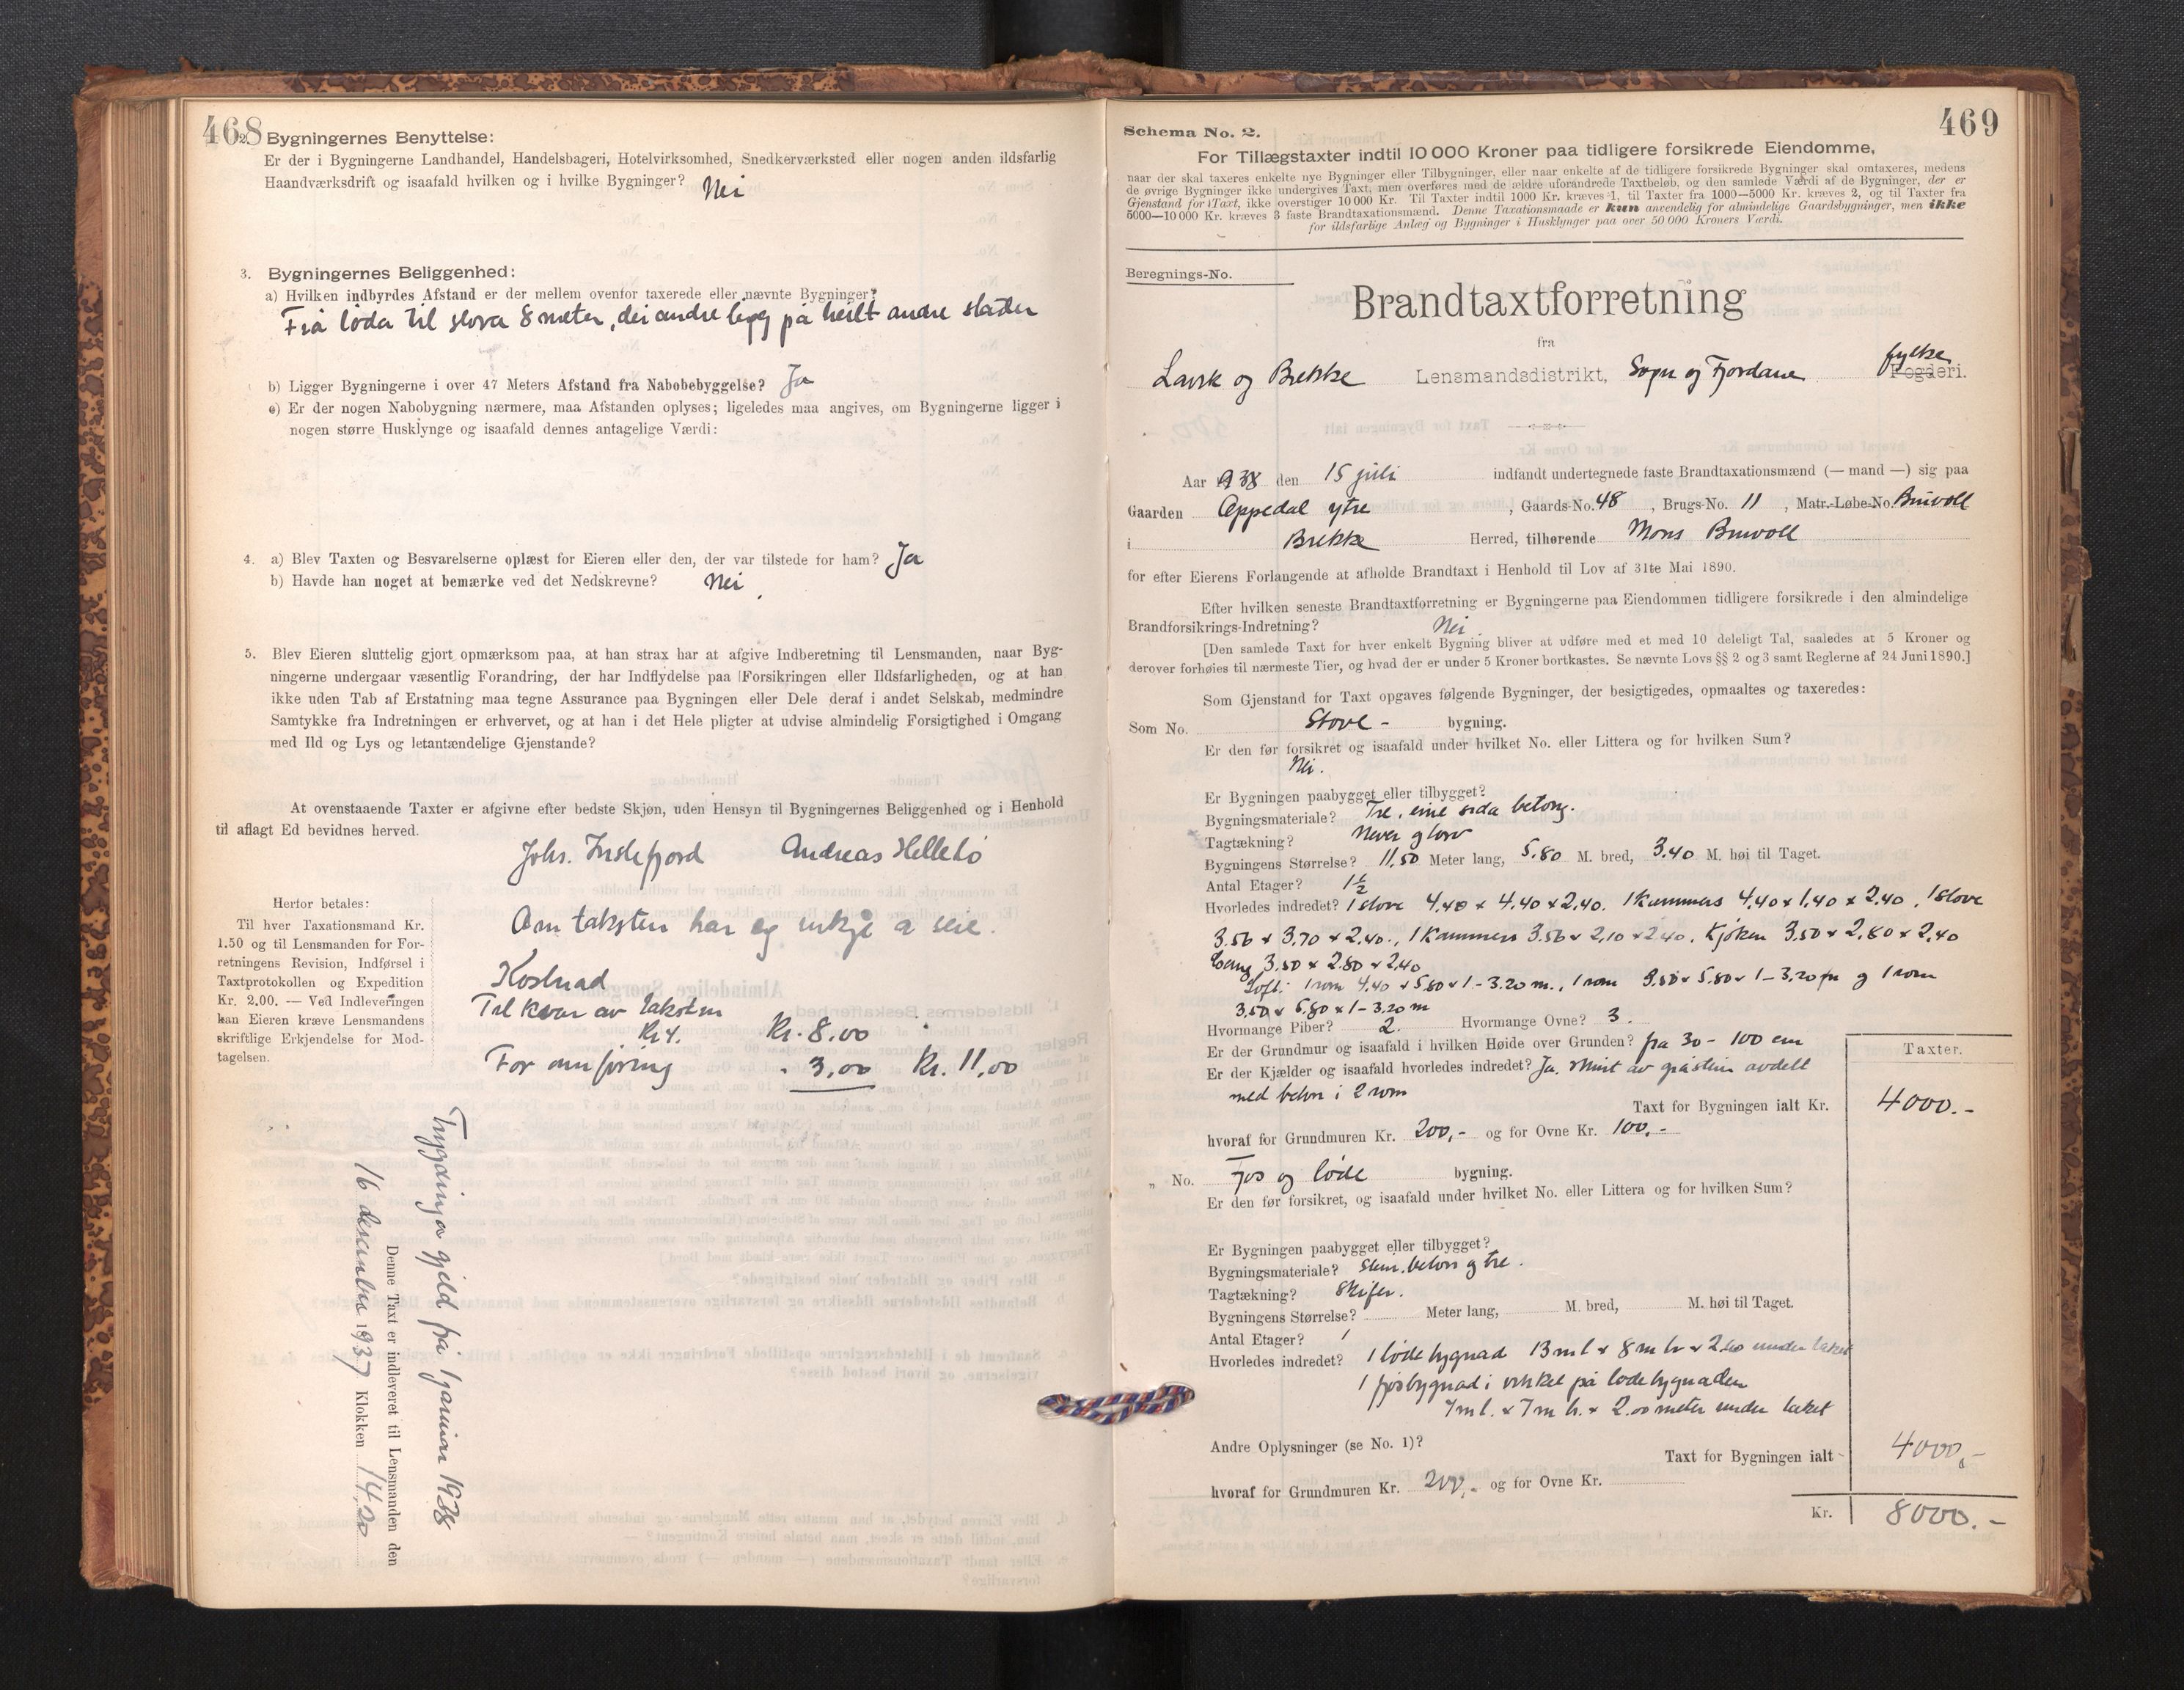 468
2. Bygningernes Benyttelse:
Er der i Bygningerne Landhandel, Handelsbageri, Hotelvirksomhed, Snedkerværksted eller nogen anden ildsfarlig
Haandværksdrift og isaafald hvilken og i hvilke Bygninger? Nei
3. Bygningernes Beliggenhed:
a) Hvilken indbyrdes Afstand er der mellem ovenfor taxerede eller nævnte Bygninger?
Frå löda til stova 8 meter, dei andre ligg på heilt andre stader
b) Ligger Bygningerne i over 47 Meters Afstand fra Nabobebyggelse? Ja
c) Er der nogen Nabobygning nærmere, maa Afstanden oplyses; ligeledes maa angives, om Bygningerne ligger i
nogen større Husklynge og isaafald dennes antagelige Værdi:
4. a) Blev Taxten og Besvarelserne oplæst for Eieren eller den, der var tilstede for ham? Ja
b) Havde han noget at bemærke ved det Nedskrevne? Nei
5. Blev Eieren sluttelig gjort opmærksom paa, at han strax har at afgive Indberetning til Lensmanden, naar Byg-
ningerne undergaar væsentlig Forandring, der har Indflydelse paa Forsikringen eller Ildsfarligheden, og at han
ikke uden Tab af Erstatning maa tegne Assurance paa Bygningen eller Dele deraf i andet Selskab, medmindre
Samtykke fra Indretningen er erhvervet, og at han i det Hele pligter at udvise almindelig Forsigtighed i Omgang
med Ild og Lys og letantændelige Gjenstande?
At ovenstaaende Taxter er afgivne efter bedste Skjøn, uden Hensyn til Bygningernes Beliggenhed og i Henhold
til aflagt Ed bevidnes herved.
Johs. Andreas Hellebö
Om taksten har eg inkje a seie.
Herfor betales:
Til hver Taxationsmand Kr.
1.50 og til Lensmanden for For-
retningens Revision, Indførsel i
Taxtprotokollen og Expedition
Kr. 2.00. — Ved Indleveringen
kan Eieren kræve Lensmandens
skriftlige Erkjendelse for Mod-
tagelsen.
Kostnad
Til kvar av takstm
Kr 4. Kr. 8.00
For innföring - 3,00 Kr. 11,00
Trygdinga gjeld frå 1 januar 1938
Denne Taxt er indleveret til Lensmanden den
16 desember 1937 Klokken 14,20
469
Schema No. 2.
For Tillægstaxter indtil 10 000 Kroner paa tidligere forsikrede Eiendomme,
naar der skal taxeres enkelte nye Bygninger eller Tilbygninger, eller naar enkelte af de tidligere forsikrede Bygninger skal omtaxeres, medens
de øvrige Bygninger ikke undergives Taxt, men overføres med de ældre uforandrede Taxtbeløb, og den samlede Værdi af de Bygninger, der er
Gjenstand for Taxt, ikke overstiger 10 000 Kr. Til Taxter indtil 1000 Kr. kræves 1, til Taxter fra 1000—5000 Kr. kræves 2, og til Taxter fra
5000—10 000 Kr. kræves 3 faste Brandtaxationsmænd. Denne Taxationsmaade er kun anvendelig for almindelige Gaardsbygninger, men ikke
for ildsfarlige Anlæg og Bygninger i Husklynger paa over 50 000 Kroners Værdi.
Beregnings-No.
Brandtaxtforretning
fra
Lavik og Brekke Lensmandsdistrikt, Sogn og Fjordane fylke Fogderi.
Aar den 15 juli indfandt undertegnede faste Brandtaxationsmænd (— mand —) sig paa
Gaarden Oppedal ytre, Gaards-No. 48, Brugs-No. 11, Matr.-Løbe-No. Buvoll
i Brekke Herred, tilhørende Mons Buvoll
for efter Eierens Forlangende at afholde Brandtaxt i Henhold til Lov af 31te Mai 1890.
Efter hvilken seneste Brandtaxtforretning er Bygningerne paa Eiendommen tidligere forsikrede i den almindelige
Brandforsikrings-Indretning? Nei
[Den samlede Taxt for hver enkelt Bygning bliver at udføre med et med 10 deleligt Tal, saaledes at 5 Kroner og
derover forhøies til nærmeste Tier, og hvad der er under 5 Kroner bortkastes. Se nævnte Lovs §§ 2 og 3 samt Reglerne af 24 Juni 1890.]
Som Gjenstand for Taxt opgaves følgende Bygninger, der besigtigedes, opmaaltes og taxeredes:
Som No. Stove - bygning.
Er den før forsikret og isaafald under hvilket No. eller Littera og for hvilken Sum?
Nei.
Er Bygningen paabygget eller tilbygget?
Bygningsmateriale? Tre, eine sida betong.
Tagtækning? Never og torv
Bygningens Størrelse? 11,50 Meter lang, 5.80 M. bred, 3.40 M. høi til Taget.
Antal Etager? 1½
Hvorledes indredet? 1 stove 4.40 x 4.40 x 2.40. 1 kammers 4.40 x 1.40 x 2.40, 1 stove
3.56 x 3.70 x 2.40., 1 kammers 3.56 x 2.10 x 2.40. Kjöken 3.50 x 2.80 x 2.40
Gang 3.50 x 2.80 x 2.40
Loft: 1 rom 4.40 x 5.80 x 1-3.20 m., 1 rom 3.50 x 5.80 x 1-3.20 m og 1 rom
3,50 x 5.80 x 1-3.20 m
Hvormange Piber? 2. Hvormange Ovne? 3.
Er der Grundmur og isaafald i hvilken Høide over Grunden? fra 30 - 100 cm
Er der Kjælder og isaafald hvorledes indredet? Ja. Murt av gråstein avdelt
med beton i 2 rom
Taxter.
Taxt for Bygningen ialt Kr. 4000.-
hvoraf for Grundmuren Kr. 200,- og for Ovne Kr. 100,-
„ No. Fjos og löde bygning.
Er den før forsikret, og isaafald under hvilket No. eller Littera og for hvilken Sum?
Er Bygningen paabygget eller tilbygget?
Bygningsmateriale? Stein, beton og tre.
Tagtækning? Skifer.
Bygningens Størrelse? Meter lang, M. bred, M. høi til Taget.
Antal Etager? 1
Hvorledes indredet? 1 lödebygnad 13 m l x 8 m br x 2.60 under taket
1 fjosbygnad i vinkel på lodebygnaden
7 m l. x 7 m br. x 2.00 meter under taket
Andre Oplysninger (se No. 1)?
Taxt for Bygningen ialt 4000,-
hvoraf for Grundmuren Kr. 200,- og for Ovne Kr.
Kr. 8000.-